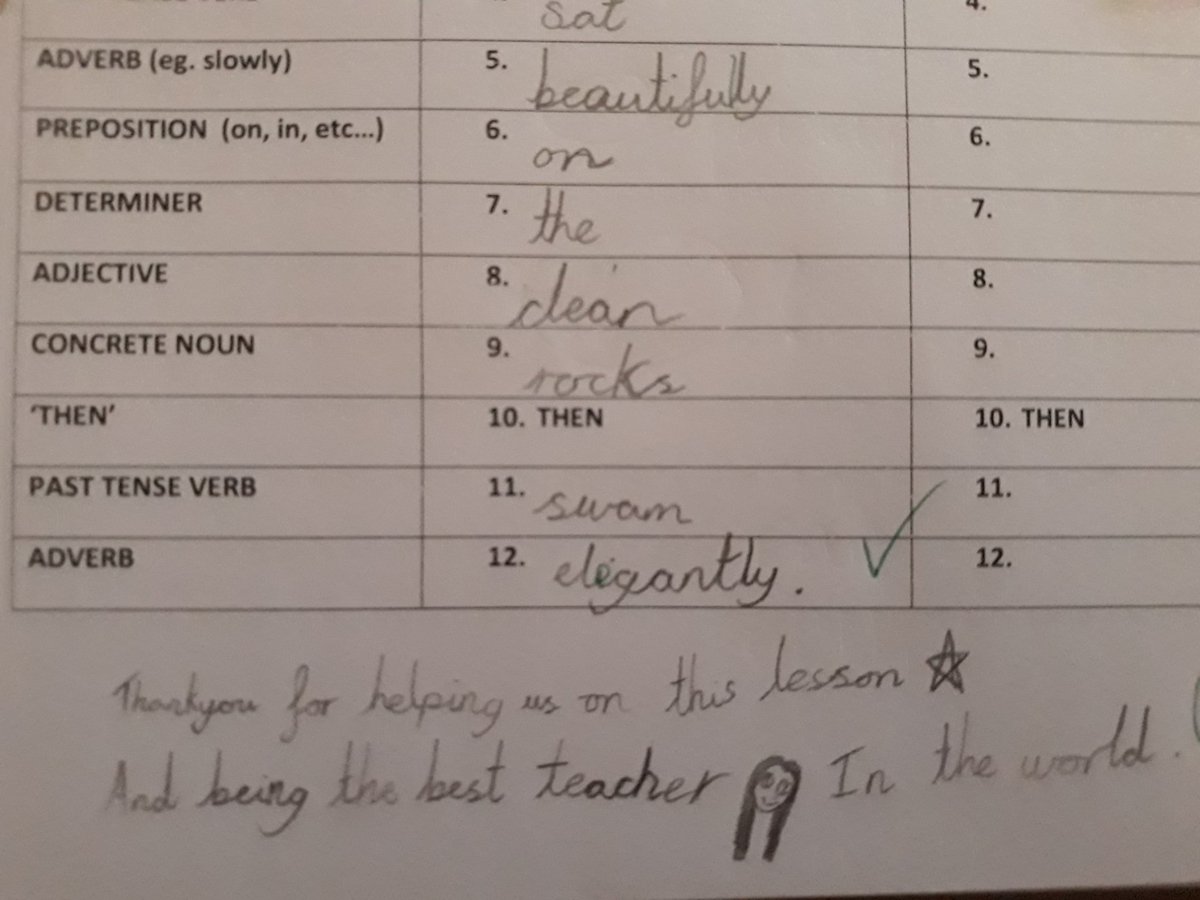 sat 4.
ADVERB (eg. slowly) 5. beautifully 5.
PREPOSITION (on, in, etc...) 6. on 6.
DETERMINER 7. the 7.
ADJECTIVE 8. clean 8.
CONCRETE NOUN 9. rocks 9.
'THEN' 10. THEN 10. THEN
PAST TENSE VERB 11. swam 11.
ADVERB 12. elegantly. 12.
Thankyou for helping us on this lesson
And being the best teacher In the world.